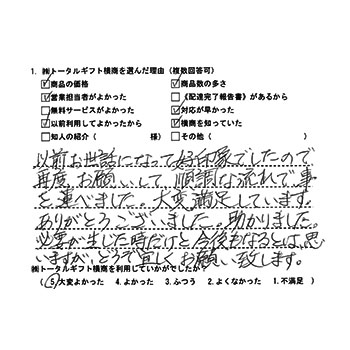 1. ㈱トータルギフト横商を選んだ理由（複数回答可）
☑商品の価格 ☑商品数の多さ
☑営業担当者がよかった □《配達完了報告書》があるから
□無料サービスがよかった ☑対応が早かった
☑以前利用してよかったから ☑横商を知っていた
□知人の紹介（ 様） □その他（ ）
以前お世話になって好印象でしたので
再度、お願いして、順調な流れで事
を運べました。大変満足しています。
ありがとうございました。助かりました。
必要が生じた時だけと今後もなるとは思
いますが、どうぞ宜しくお願い致します。
㈱トータルギフト横商を利用していかがでしたか？
（ ⑤大変よかった 4.よかった 3.ふつう 2.よくなかった 1.不満足 ）